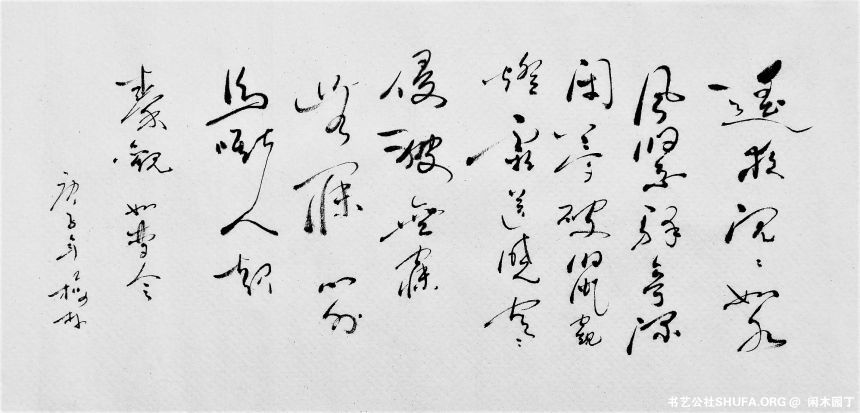 遥夜沉々如水
风緊驿亭深
闭夢破鼠窺
燈霜送曉寒
侵被無寐
無寐门外
馬嘶人起
秦觀 如夢令
庚子年
书艺公社SHUFA.ORG @ 闲木园丁